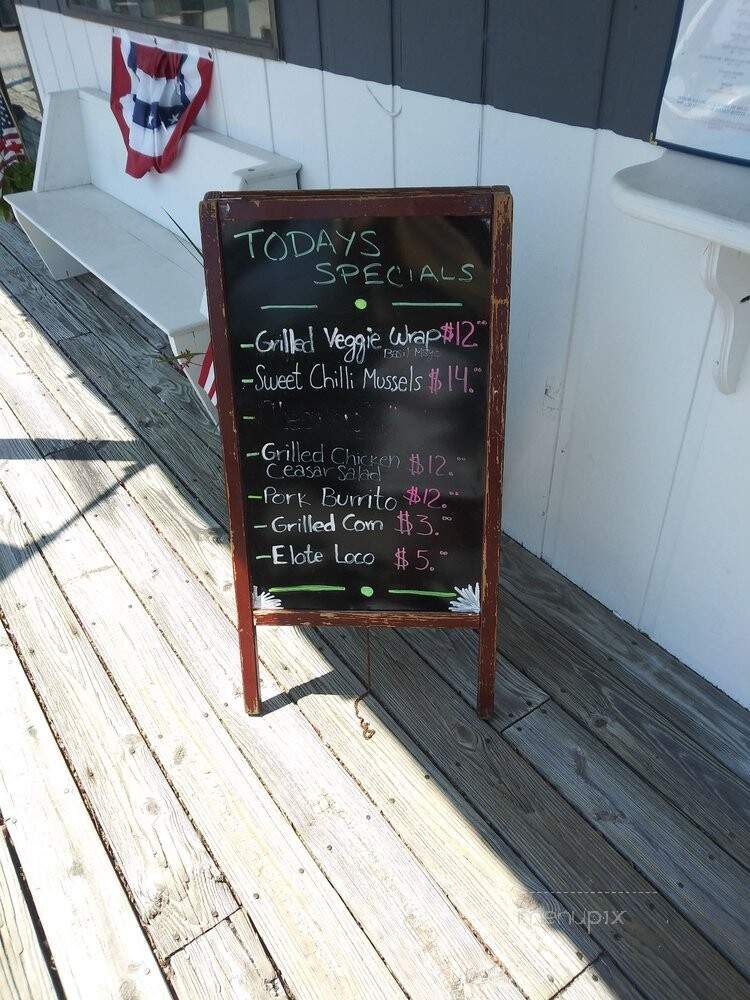 TODAYS
SPECIALS
- Grilled Veggie Wrap $12.00
Basil Mayo
- Sweet Chilli Mussels $14.00
-
- Grilled Chicken $12.00
Ceasar Salad
- Pork Burrito $12.00
- Grilled Corn $3.00
- Elote Loco $5.00
menupix